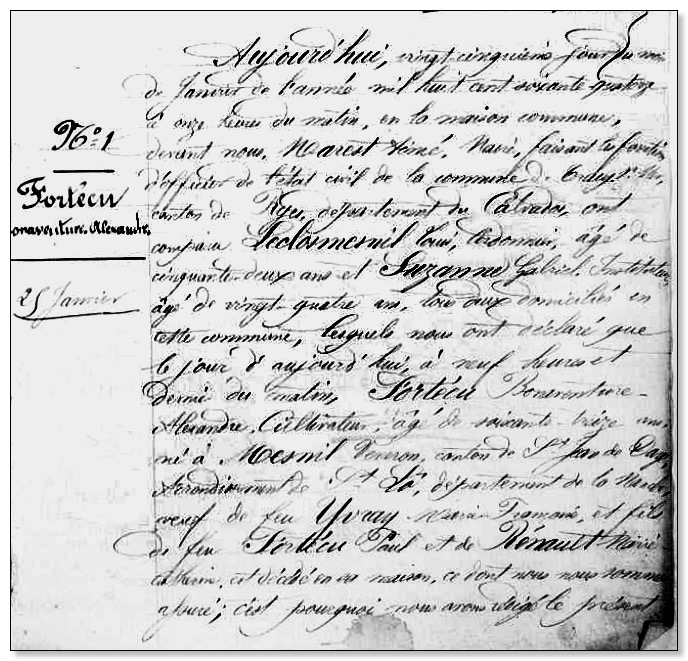 N° 1
Fortécu
onaventure Alexandre
25 Janvier
Aujourd'hui, vingt cinquième jour du mois
de Janvier de l'année mil huit cent soixante quatorze
à onze heures du matin, en la maison commune,
devant nous, Marest Aimé, Maire, faisant les fonctions
d'officier de l'état civil de la commune de
canton de Ryes, département du Calvados, ont
comparu Leclosmesnil Louis, Cordonnier, âgé de
cinquante deux ans et Suzanne Gabriel, Instituteur,
âgé de vingt quatre ans, tous deux domiciliés en
cette commune, lesquels nous ont déclaré que
le jour d'aujourd'hui, à neuf heures et
demie du matin, Fortécu Bonaventure
Alexandre, Cultivateur, âgé de soixante treize ans,
né à Mesnil Veneron, canton de St Jean de Daye,
Arrondissement de St Lô, département de la Manche,
veuf de feu Yvray Marie Françoise, et fils
de feu Fortécu Paul et de Rénault Marie
Catherine, est décédé en sa maison, ce dont nous nous sommes
assuré; c'est pourquoi nous avons rédigé le présent